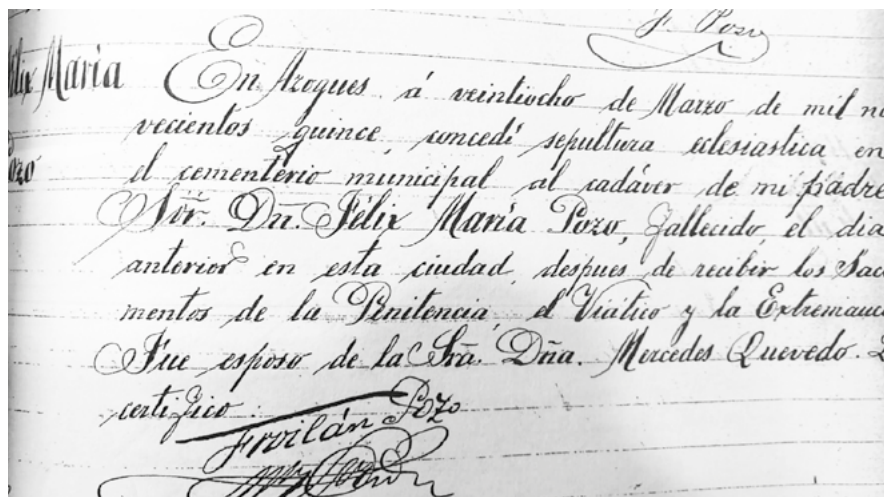 F. Pozo
Félix María
Pozo
En Azogues á veintiocho de Marzo de mil no
vecientos quince, concedí sepultura eclesiastica en
el cementerio municipal al cadáver de mi padre
Sor. Dn. Félix María Pozo, fallecido el dia
anterior en esta ciudad, despues de recibir los Sac
mentos de la Penitencia, el Viático y la Extremaunc
Fue esposo de la Sra. Dña. Mercedes Quevedo.
certifico.
Froilán Pozo